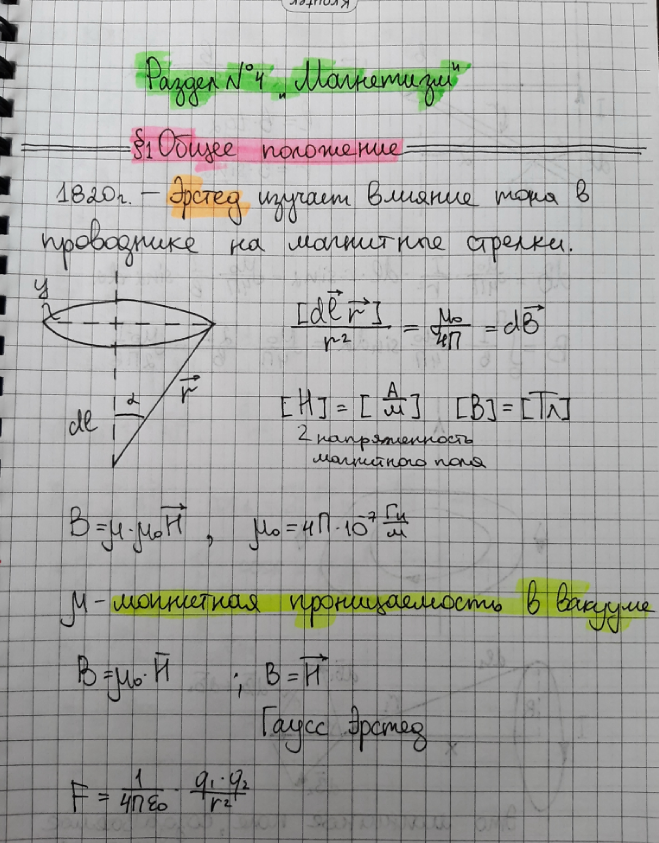 Раздел №4 „Магнетизм"
§1 Общее положение
1820г. – Эрстед изучает влияние тока в
проводнике на магнитные стрелки.
y
[dl⃗ r⃗] / r² = μ₀ / 4П = dB⃗
α
r⃗
dl
[H] = [А/м] [B] = [Тл]
2 напряженность
магнитного поля
B = μ·μ₀H⃗ , μ₀ = 4П·10⁻⁷ Гн/м
μ – магнитная проницаемость в вакууме
B = μ₀·H̅ ; B = H⃗
Гаусс Эрстед
F = 1/4Пε₀ · q₁·q₂/r²